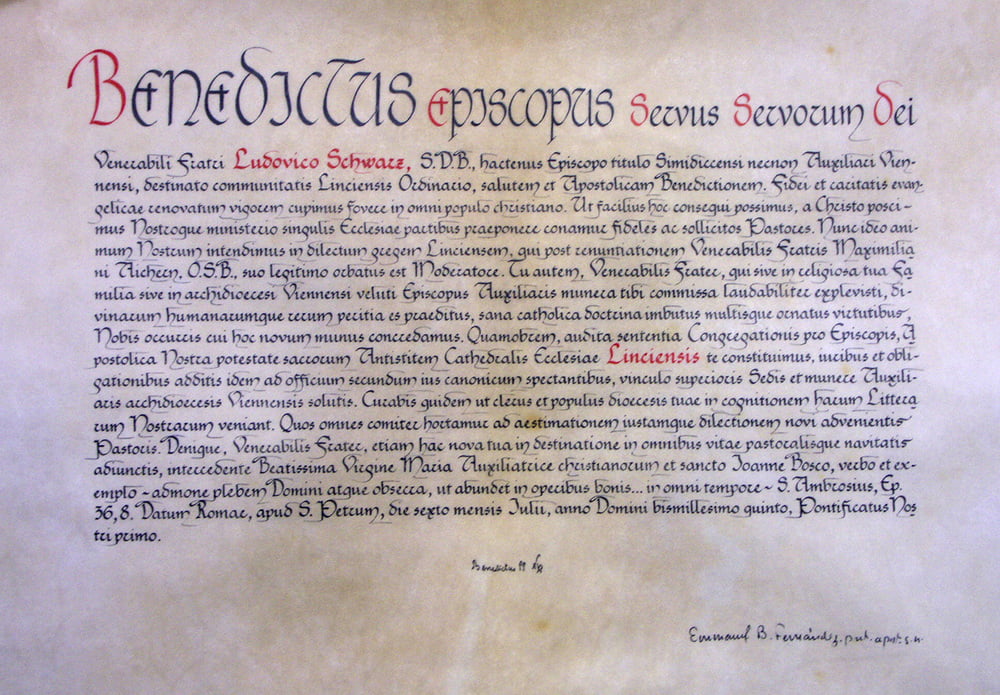 Benedictus Episcopus Servus Servorum Dei
Venerabili Fratri Ludovico Schwarz, S.D.B., hactenus Episcopo titulo Simidiccensi necnon Auxiliari Vien-
nensi, destinato communitatis Linciensis Ordinario, salutem et Apostolicam Benedictionem. Fidei et caritatis evan-
gelicae renovatum vigorem cupimus fovere in omni populo christiano. Ut facilius hoc consequi possimus, a Christo posci-
mus Nostroque ministerio singulis Ecclesiae partibus praeponere conamur fideles ac sollicitos Pastores. Nunc ideo ani-
mum Nostrum intendimus in dilectum gregem Linciensem, qui post renuntiationem Venerabilis Fratris Maximilia
ni Aichern, O.S.B., suo legitimo orbatus est Moderatore. Tu autem, Venerabilis Frater, qui sive in religiosa tua Fa
milia sive in archidioecesi Viennensi veluti Episcopus Auxiliaris munera tibi commissa laudabiliter explevisti, di-
vinarum humanarumque rerum peritia es praeditus, sana catholica doctrina imbutus multisque ornatus virtutibus,
Nobis occurris cui hoc novum munus concredamus. Quamobrem, audita sententia Congregationis pro Episcopis, A
postolica Nostra potestate sacrorum Antistitem Cathedralis Ecclesiae Linciensis te constituimus, iuribus et obli-
gationibus additis idem ad officium secundum ius canonicum spectantibus, vinculo superioris Sedis et munere Auxili-
aris archidioecesis Viennensis solutis. Curabis quidem ut clerus et populus dioecesis tuae in cognitionem harum Littera
rum Nostrarum veniant. Quos omnes comiter hortamur ad aestimationem iustamque dilectionem novi advenientis
Pastoris. Denique, Venerabilis Frater, etiam hac nova tua in destinatione in omnibus vitae pastoralisque navitatis
adiunctis, intercedente Beatissima Virgine Maria Auxiliatrice christianorum et sancto Joanne Bosco, verbo et ex-
emplo ~ admone plebem Domini atque obsecra, ut abundet in operibus bonis... in omni tempore ~ S. Ambrosius, Ep.
36,8. Datum Romae, apud S. Petrum, die sexto mensis Iulii, anno Domini bismillesimo quinto, Pontificatus Nos
tri primo.
Benedictus PP XVI
Emmanuel B. Fernández, prot. apost. s.n.